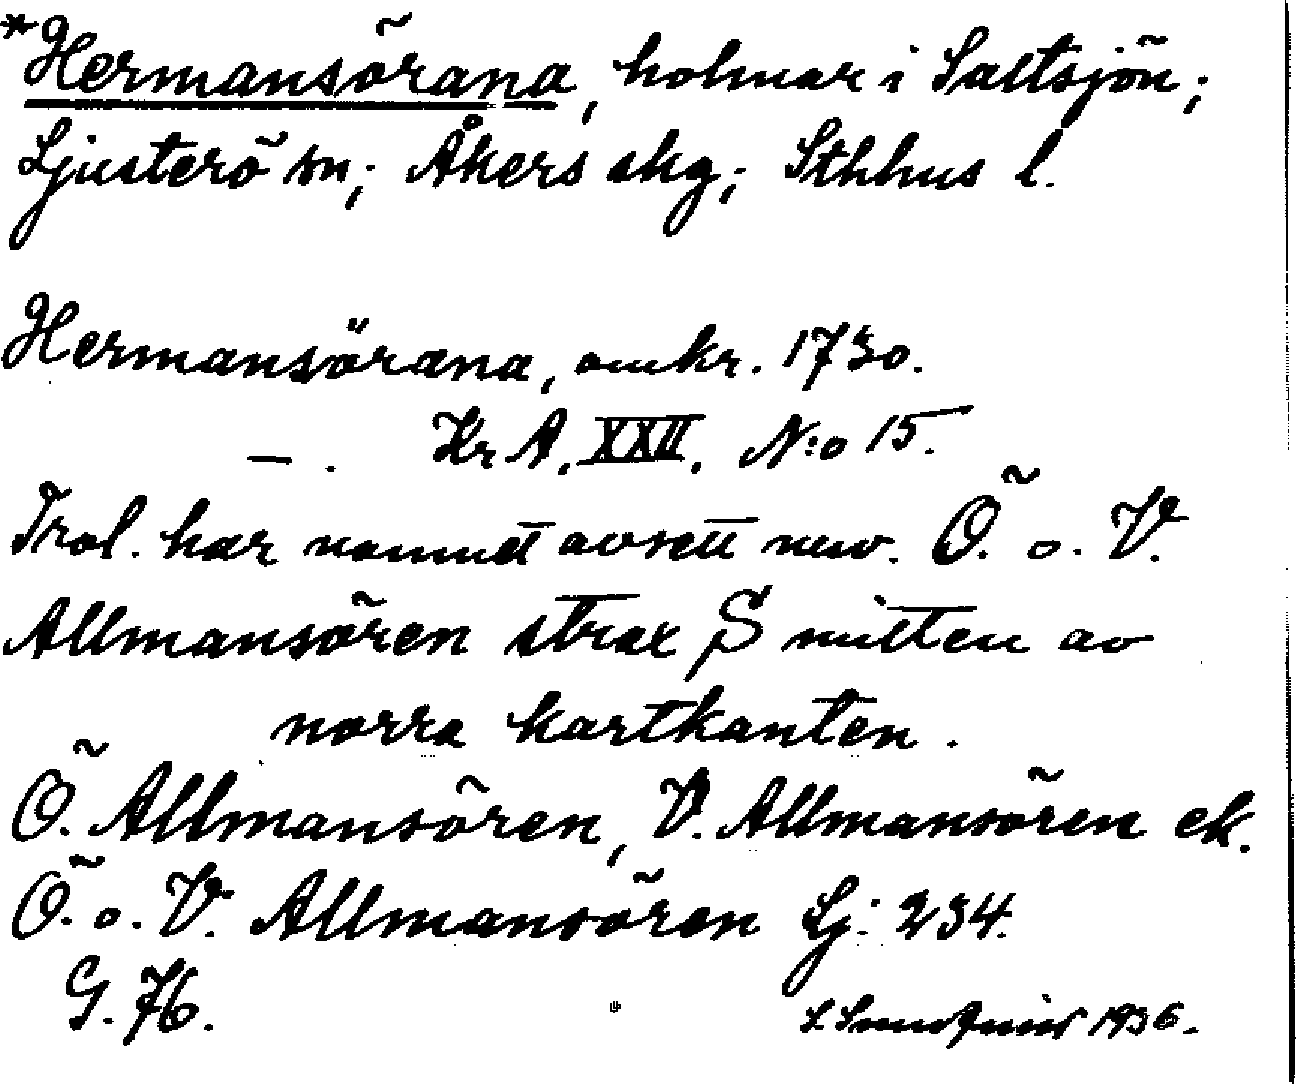 *Hermansörana, holmar i Saltsjön;
Ljusterö sn; Åkers skg; Sthhus l.
Hermansörana, omkr. 1730.
—. KrA, XXII, N:o 15.
Trol. har namnet avsett nuv. Ö. o. V.
Allmansören strax S mitten av
norra kartkanten.
Ö. Allmansören, V. Allmansören ek.
Ö. o. V. Allmansören Lj: 234.
G. 76.
1936.